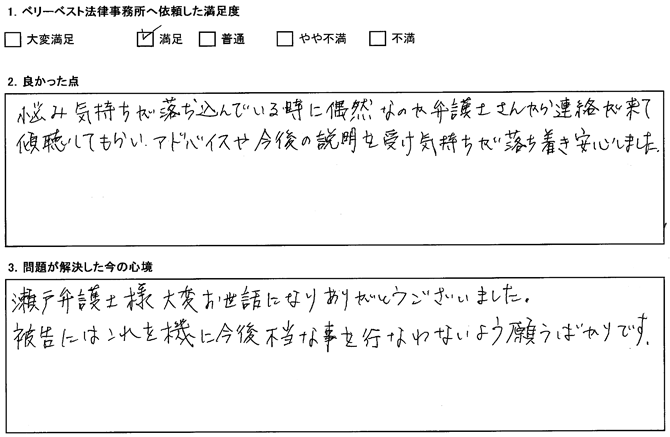 1. ベリーベスト法律事務所へ依頼した満足度
□ 大変満足 ☑ 満足 □ 普通 □ やや不満 □ 不満
2. 良かった点
悩み気持ちが落ち込んでいる時に偶然なのか弁護士さんから連絡が来て
傾聴してもらい、アドバイスや今後の説明を受け気持ちが落ち着き安心しました。
3. 問題が解決した今の心境
瀬戸弁護士様大変お世話になりありがとうございました。
被告にはこれを機に今後不当な事を行なわないよう願うばかりです。